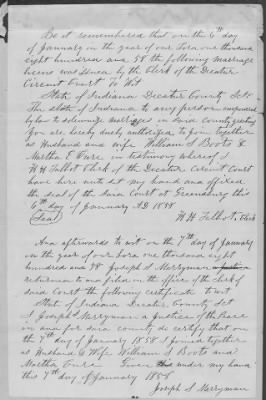 Be it remembered that on the 6th day
of January in the year of our Lord one thousand
eight hundred and 58 the following marriage
license was issued by the Clerk of the Decatur
Circuit Court To Wit
State of Indiana Decatur County Sct
The State of Indiana to any person empowered
by law to solemnize marriages in said county greeting
You are hereby duely authorized to join together
as Husband and wife William S Boots &
Martha E Ture in testimony whereof I
W H Talbot Clerk of the Decatur Circuit Court
have here unto set my hand and affixed
the seal of the Said Court at Greensburg this
6th day of January AD 1858
(Seal) W. H Talbot, Clerk
And afterwards to wit on the 7th day of January
in the year of our Lord one thousand eight
hundred and 58 Joseph S Merryman
returned to and filed in the office of the clerk of
said Court the following certificate to wit
State of Indiana Decatur County Sct
I Joseph S Merryman a Justice of the Peace
in and for said county do certify that on
the 7th day of January 1858 I joined together
as Husband & Wife William S Boots and
Martha Ture Given under my hand
this 7th day of January 1858
Joseph S Merryman